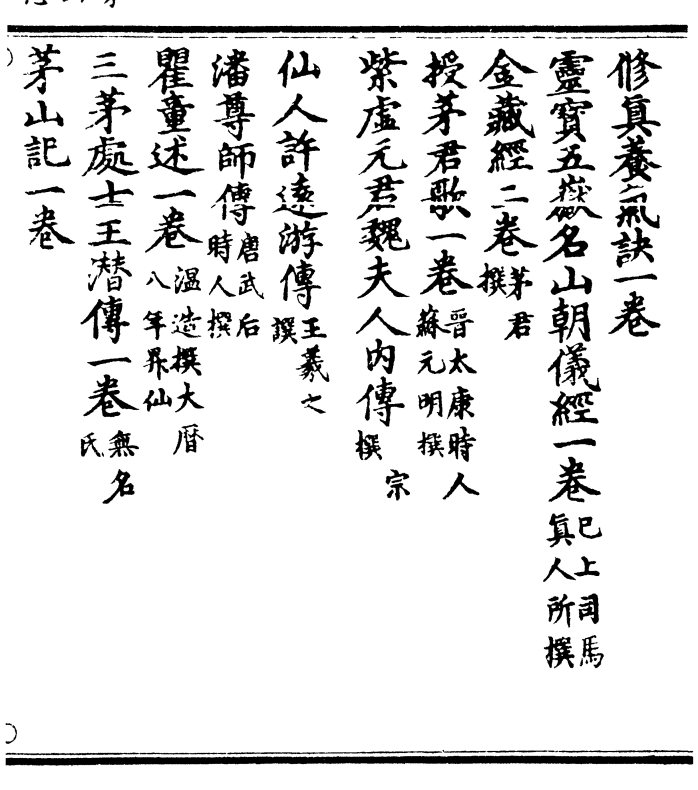 修眞養氣訣一卷
靈寶五嶽名山朝儀經一卷巳上司馬眞人所撰
金藏經二卷茅君撰
授茅君歌一卷晉太康時人蘇元明撰
紫虛元君魏夫人內傳宗撰
仙人許遠游傳王羲之譔
潘尊師傳唐武后時人撰
瞿童述一卷温造撰大曆八年昇仙
三茅處士王潛傳一卷無名氏
茅山記一卷